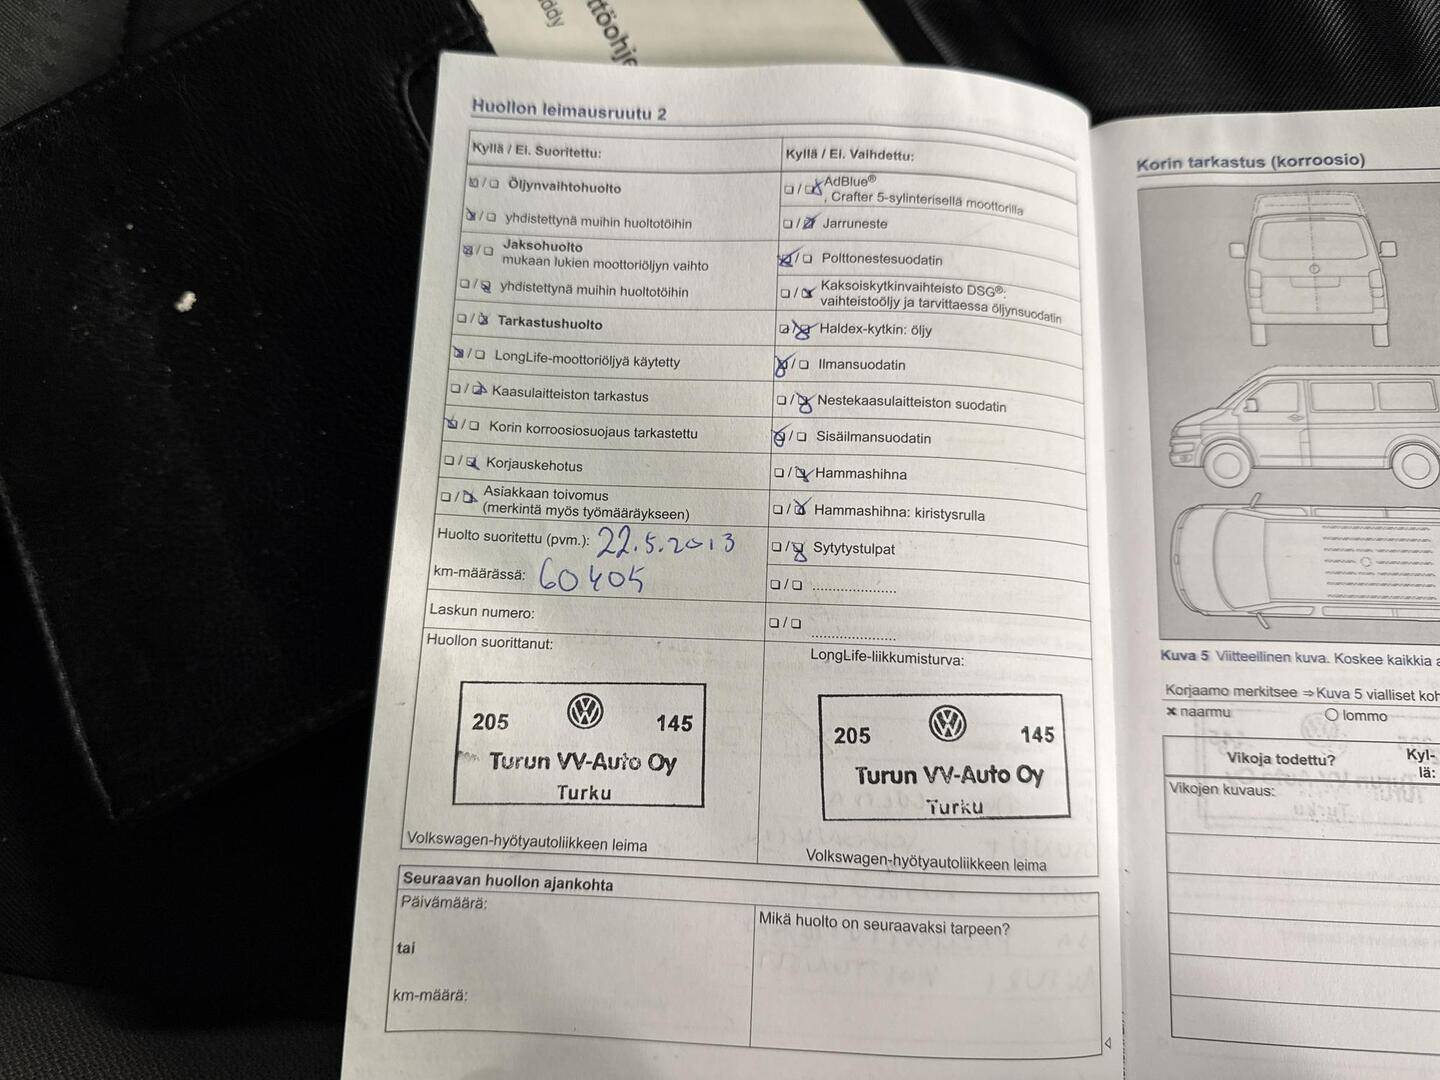 ddy
ttöohje
Huollon leimausruutu 2
Kyllä / Ei. Suoritettu:
☒/☐ Öljynvaihtohuolto
☒/☐ yhdistettynä muihin huoltotöihin
☒/☐ Jaksohuolto
mukaan lukien moottoriöljyn vaihto
☐/☒ yhdistettynä muihin huoltotöihin
☐/☒ Tarkastushuolto
☒/☐ LongLife-moottoriöljyä käytetty
☐/☒ Kaasulaitteiston tarkastus
☒/☐ Korin korroosiosuojaus tarkastettu
☐/☒ Korjauskehotus
☐/☒ Asiakkaan toivomus
(merkintä myös työmääräykseen)
Huolto suoritettu (pvm.): 22.5.2013
km-määrässä: 60405
Laskun numero:
Huollon suorittanut:
205 145
Turun VV-Auto Oy
Turku
Volkswagen-hyötyautoliikkeen leima
Kyllä / Ei. Vaihdettu:
☐/☒ AdBlue®
, Crafter 5-sylinterisellä moottorilla
☐/☒ Jarruneste
☒/☐ Polttonestesuodatin
☐/☒ Kaksoiskytkinvaihteisto DSG®:
vaihteistoöljy ja tarvittaessa öljynsuodatin
☐/☒ Haldex-kytkin: öljy
☒/☐ Ilmansuodatin
☐/☒ Nestekaasulaitteiston suodatin
☒/☐ Sisäilmansuodatin
☐/☒ Hammashihna
☐/☒ Hammashihna: kiristysrulla
☐/☒ Sytytystulpat
☐/☐ .....................
☐/☐ .....................
LongLife-liikkumisturva:
205 145
Turun VV-Auto Oy
Turku
Volkswagen-hyötyautoliikkeen leima
Seuraavan huollon ajankohta
Päivämäärä:
tai
km-määrä:
Mikä huolto on seuraavaksi tarpeen?
Korin tarkastus (korroosio)
Kuva 5 Viitteellinen kuva. Koskee kaikkia a
Korjaamo merkitsee ⇒Kuva 5 vialliset koh
× naarmu ○ lommo
Vikoja todettu? Kyl-
lä:
Vikojen kuvaus: